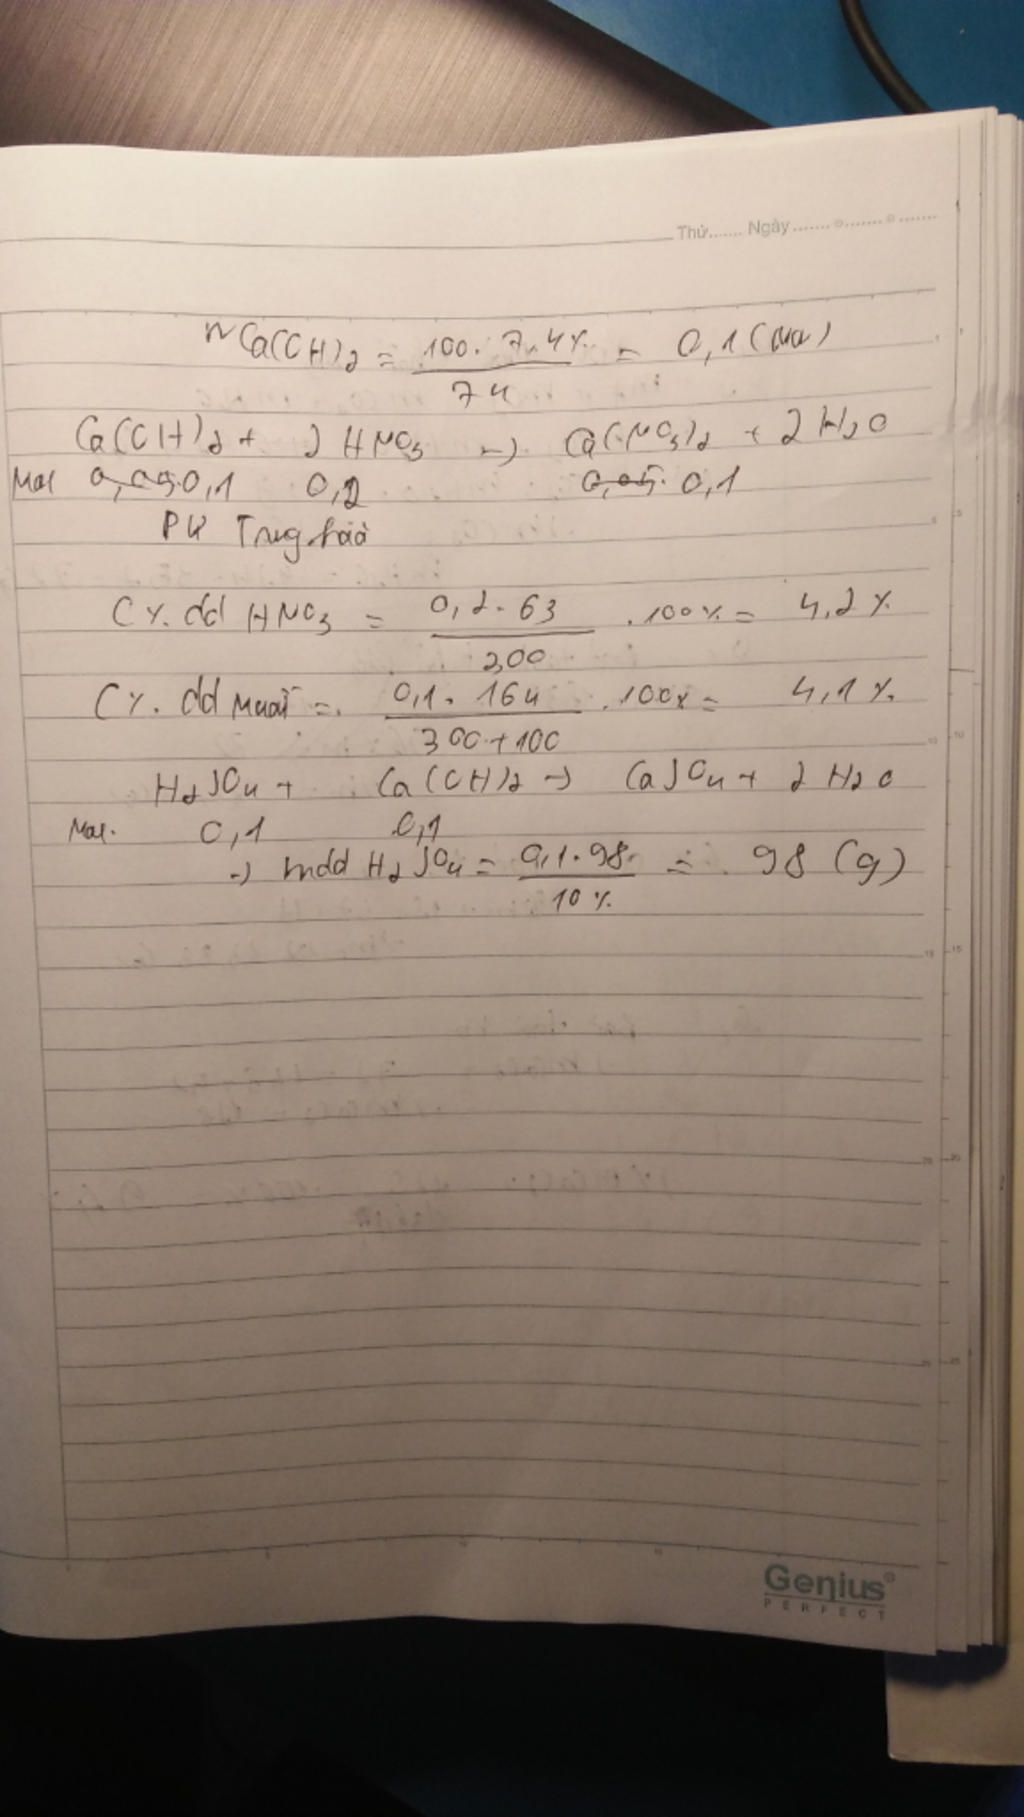 Thứ....... Ngày.......
nCa(OH)2 = 100.7,4% / 74 = 0,1 (mol)
Ca(OH)2 + 2HNO3 → Ca(NO3)2 + 2H2O
Mol 0,05 0,1 0,2 0,05 0,1
PƯ Trung hoà
C%dd HNO3 = 0,2.63 / 300 .100% = 4,2%
C%dd muối = 0,1.164 / 300+100 .100% = 4,1%
H2SO4 + Ca(OH)2 → CaSO4 + 2H2O
Mol 0,1 0,1
→ mdd H2SO4 = 0,1.98 / 10% = 98 (g)
Genius
PERFECT